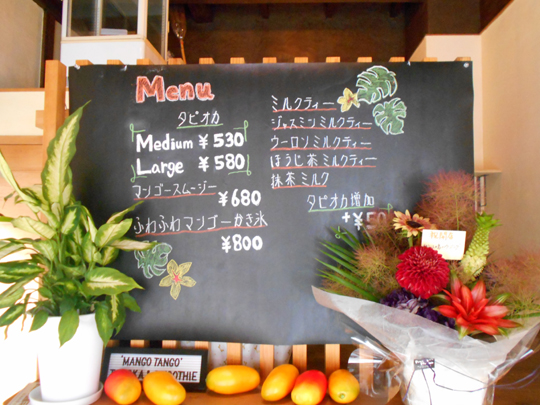 Menu
タピオカ
Medium ¥530
Large ¥580
マンゴースムージー
¥680
ふわふわマンゴーかき氷
¥800
ミルクティー
ジャスミンミルクティー
ウーロンミルクティー
ほうじ茶ミルクティー
抹茶ミルク
タピオカ増加
+¥50
"MANGO TANGO"